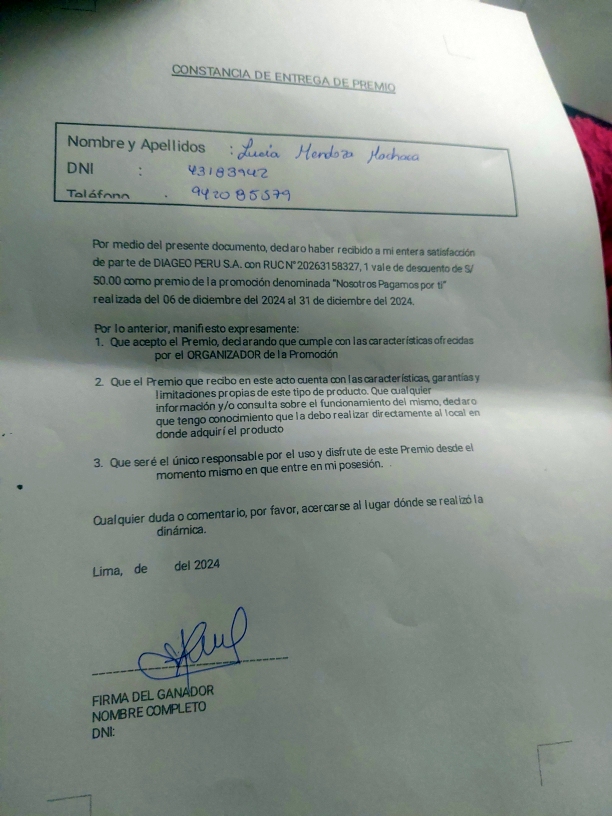 CONSTANCIA DE ENTREGA DE PREMIO
Nombre y Apellidos : Lucia Mendoza Machaca
DNI : 43183942
Teléfono : 942085579
Por medio del presente documento, declaro haber recibido a mi entera satisfacción
de parte de DIAGEO PERU S.A. con RUC N° 20263158327, 1 vale de descuento de S/
50.00 como premio de la promoción denominada "Nosotros Pagamos por ti"
realizada del 06 de diciembre del 2024 al 31 de diciembre del 2024.
Por lo anterior, manifiesto expresamente:
1. Que acepto el Premio, declarando que cumple con las características ofrecidas
por el ORGANIZADOR de la Promoción
2. Que el Premio que recibo en este acto cuenta con las características, garantías y
limitaciones propias de este tipo de producto. Que cualquier
información y/o consulta sobre el funcionamiento del mismo, declaro
que tengo conocimiento que la debo realizar directamente al local en
donde adquirí el producto
3. Que seré el único responsable por el uso y disfrute de este Premio desde el
momento mismo en que entre en mi posesión.
Cualquier duda o comentario, por favor, acercarse al lugar dónde se realizó la
dinámica.
Lima, de del 2024
FIRMA DEL GANADOR
NOMBRE COMPLETO
DNI: